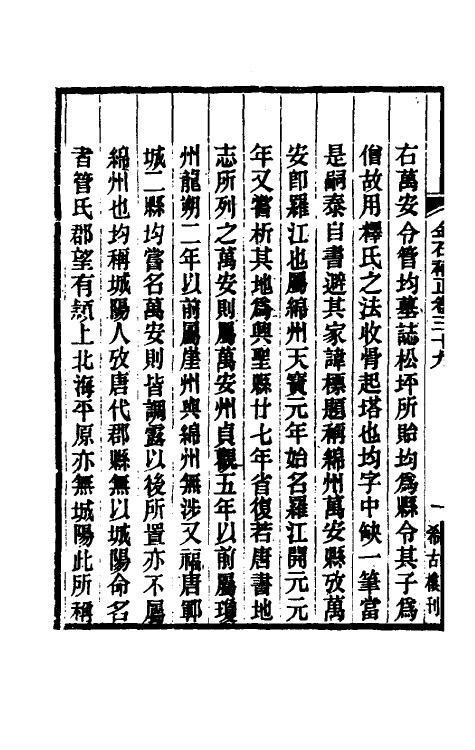 金石補正卷三十九
一
希古樓刊
右萬安令管均墓誌松坪所貽均爲縣令其子爲
僧故用釋氏之法收骨起塔也均字中缺一筆當
是嗣泰自書避其家諱標題稱綿州萬安縣攷萬
安卽羅江也屬綿州天寶元年始名羅江開元元
年又嘗析其地爲興聖縣廿七年省復若唐書地
志所列之萬安則屬萬安州貞觀五年以前屬瓊
州龍朔二年以前屬崖州與綿州無涉又福唐鄆
城二縣均嘗名萬安則皆調露以後所置亦不屬
綿州也均稱城陽人攷唐代郡縣無以城陽命名
者管氏郡望有潁上北海平原亦無城陽此所稱